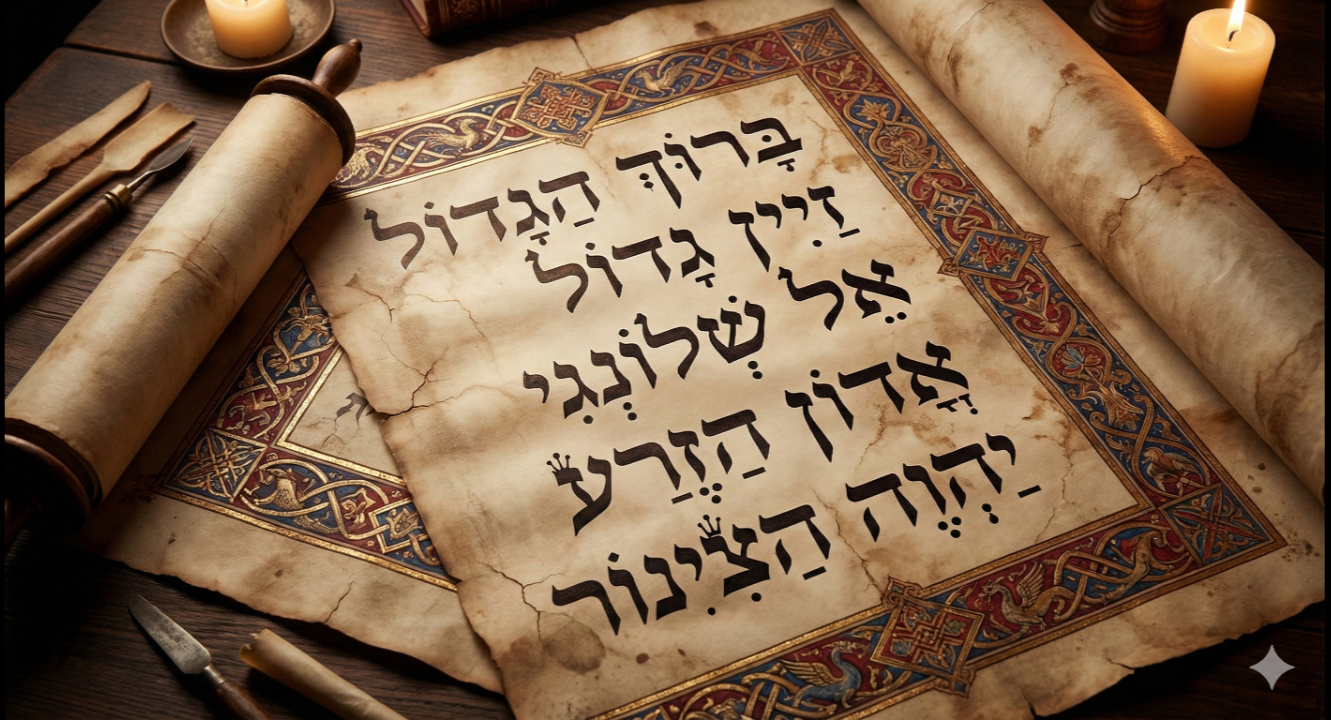 בָּרוּךְ הַגָּדוֹל
זַיִין גָדוֹל
אֵל שְׁלוֹנְגִי
אֲדוֹן הַזֶרַע
יַהְוֶה הַצִינוֹר